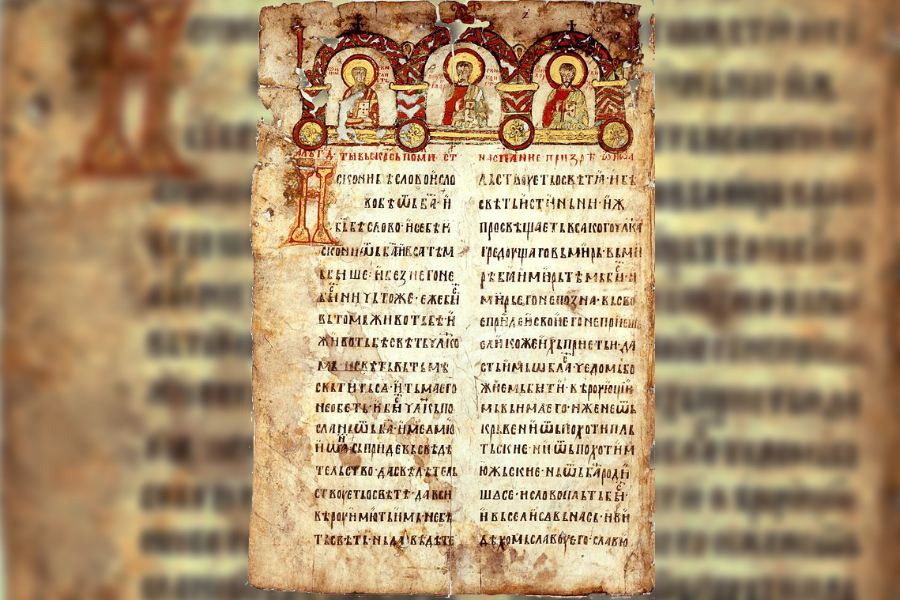 искони бѣ слово и сло
во бѣ ѿ ба· и
бь бѣ слово· и се бѣ и
скони ѿ ба и вса тѣм
ь быше· и без него не
бы ничьтоже· еже бы
вь томь животь бѣ· и
животь бѣ свѣть члко
мь· и свѣть вь тьмѣ
свѣтить са· и тьма его
не обеть· и бы члкь по
слань ѿ ба· име емю
иѡа· сь приде вь свѣдѣ
тельство· да свѣдѣтель
ствꙋеть о свѣтѣ· да вси
вѣрꙋ имють имь· не бѣ
ть свѣть· нь да свѣдѣте
льствꙋеть о свѣтѣ· и бѣ
свѣть истиньны· иж
просвѣщаеть всакого члка
гредꙋща го вь мирь· вь ми
рѣ бѣ и мирь тѣмь бы· и
мирь его не позна· вь сво
е приде и свои его не поиеше
елико же ихь приеть и· да
сть имь ѡбла· чедомь бо
жиемь быти· вѣрꙋющи
мь вь има его· иже не ѿ
крьве ни ѿ похоти пль
тьские· ни ѿ похоти м
южьские· нь ѿ ба роди
шасе· и слово пльть бы·
и вьсели са вь нась· и ви
дѣхомь славꙋ его· славꙋ